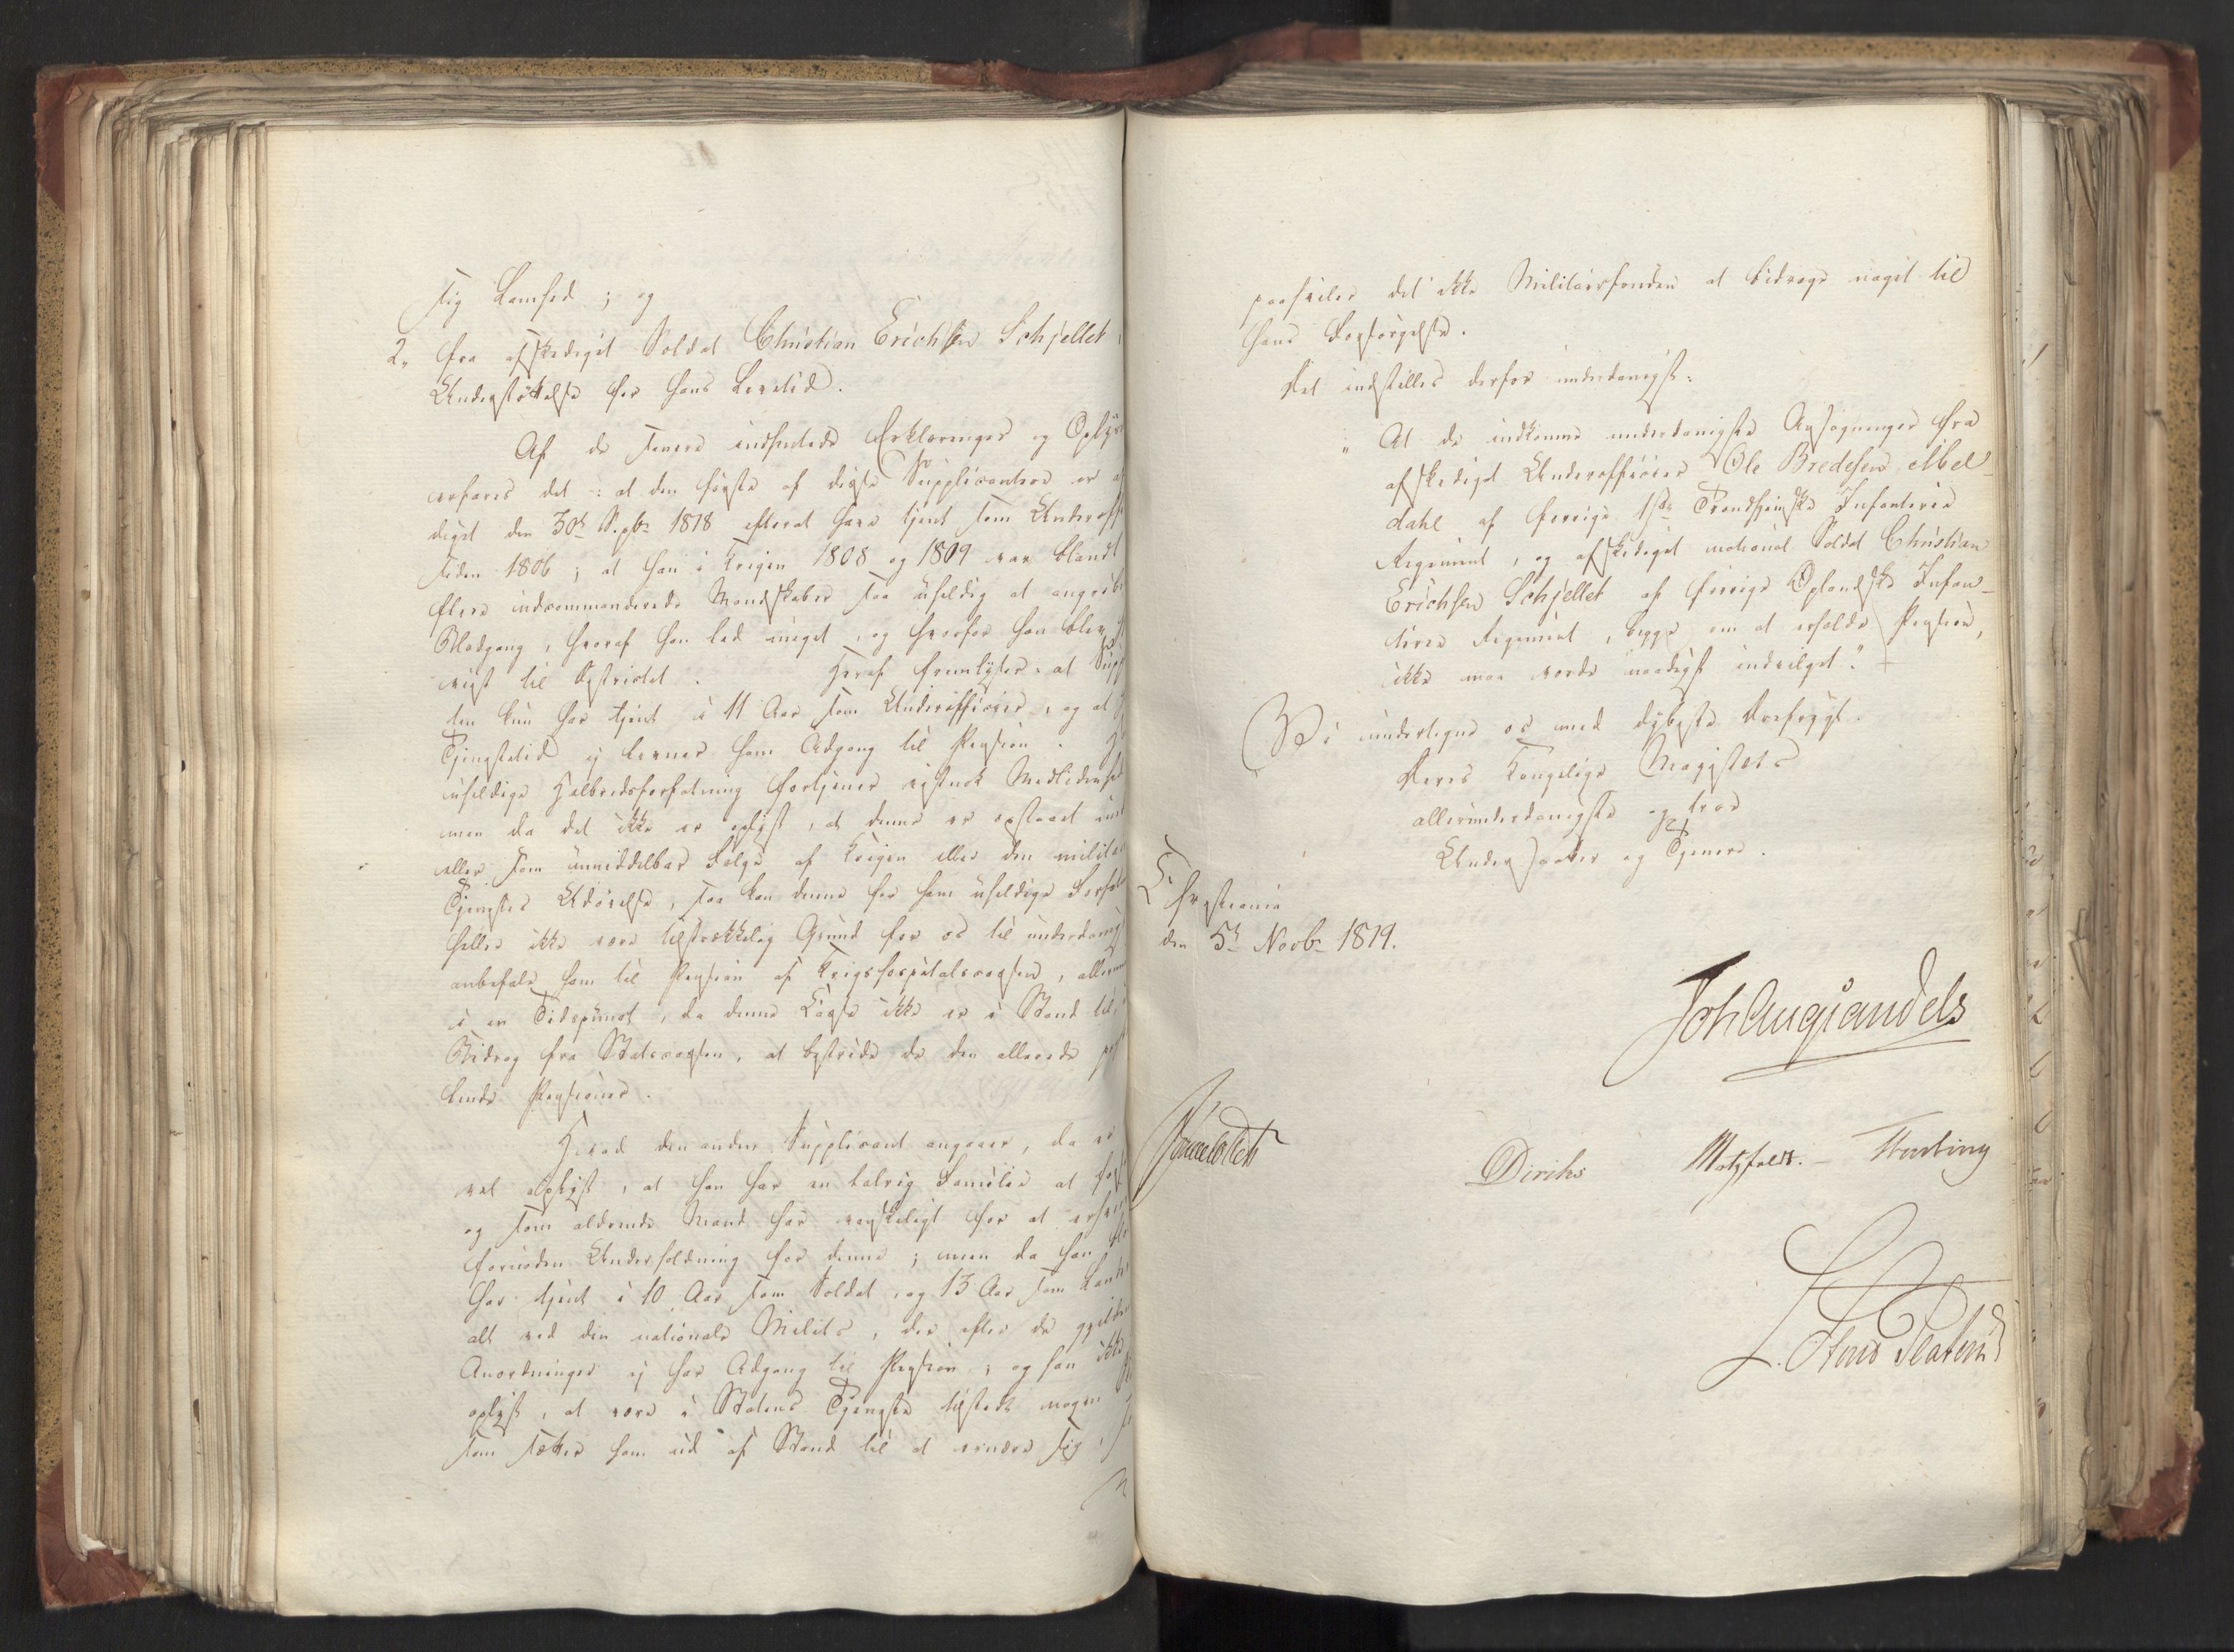 sig Lamhed ; og
2, fra afskediget Soldat Christian Erichsen Schjellet
Understöttelse for hans Levetid.
Af de senere indhentede Erklæringer og Oplys
erfares det : at den förste af disse Supplicantere er af
diget den 30te Septbr 1818 efterat have tjent som Underoff
siden 1806 ; at han i Krigen 1808 og 1809 var blandt
flere indcommanderede Mandskaber saa uheldig at angribes
Blodgang, hvoraf han led meget, og hvorfor han blev
viist til Districtet . Heraf fremlyser, at Supp
ten kun har tjent i 11 Aar som Underofficeer, og at
Tjenestetid ej levner ham Adgang til Pension .
uheldige Helbredsforfatning fortjener vistnok Medlidenhed
men da det ikke er oplyst, at denne er opstaaet
eller som umiddelbar Fölge af Krigen eller den militai
Tjenestes Udövelse, saa kan denne for ham uheldige Forfat
heller ikke være tilstrækkelig Grund for os til underdanigst
anbefale ham til Pension af Krigshospitalscassen, allermi
i en Tidspunct, da denne Casse ikke er i Stand til,
Bidrag fra Statscassen, at bestride de den allerede
lende Pensioner .
Hvad den anden Supplicant angaaer, da er
vel oplyst, at han har en talrig Familie at fors
og som aldrende Mand har vanskeligt for at erhver
fornöden Underholdning for denne ; men da han
har tjent i 10 Aar som Soldat, og 13 Aar som Land
alt ved den nationale Milits, der efter de gjelden
Anordninger ej har Adgang til Pension ; og han ikke
oplyst, at være i Statens Tjeneste tilstödt nogen
som sætter ham ud af Stand til at ernære sig,
paahviler det ikke Militairfonden at bidrage noget til
hans Forsörgelse.
Det indstilles derfor underdanigst:
" At de indkomne underdanigste Ansögninger fra
afskediget Underofficeer Ole Bredesen Mel-
dahl af forrige 1ste Trondhjemske Infanterie
Regiment, og afskediget national Soldat Christian
Erichsen Schjellet af forrige Oplandske Infan-
terie Regiment, begge om at erholde Pension,
ikke maa vorde naadigst indvilget".
Vi undertegne os med dybeste Ærefrygt.
Deres Kongelige Majestæts
allerunderdanigste og troe
Undersaatter og Tjenere .
Christiania
den 5te Novbr 1819.
Joh Aug Sandels
Diriks Motzfeldt. Hertting
L. Stoud Platou